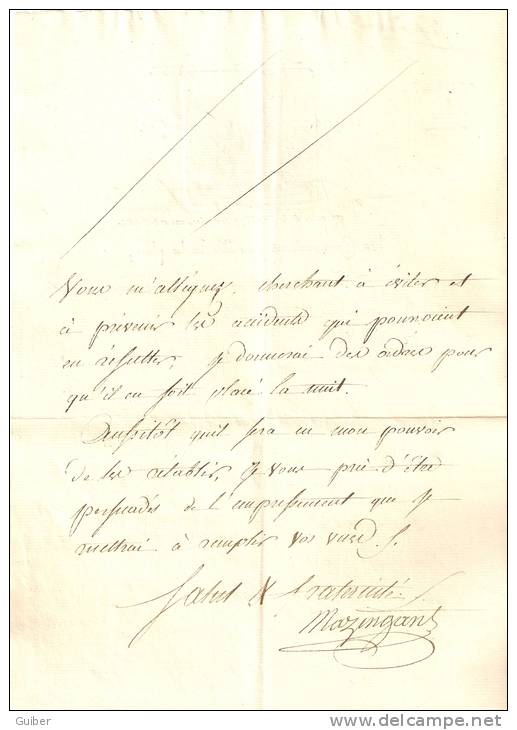 Vous m'alléguez, cherchant à éviter et
à prévenir les accidents qui pourroient
en résulter, je donnerai des ordres pour
qu'il en soit placé la nuit.
Aussitôt qu'il sera en mon pouvoir
de les rétablir, je vous prie d'être
persuadés de l'empressement que je
mettrai à remplir vos vues.
Salut & fraternité.
Mazingant
Guiber
www.delcampe.net